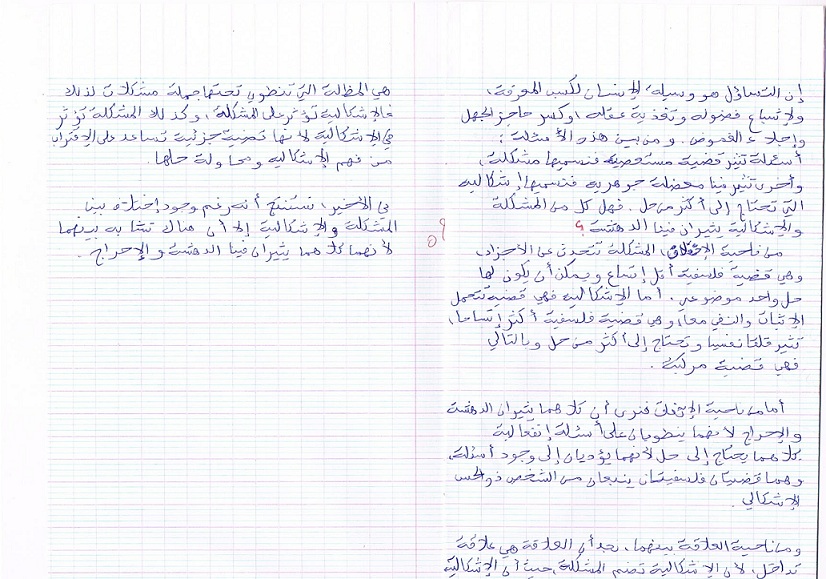 إن التساؤل هو وسيلة الإنسان لكسب المعرفة،
ولإشباع فضوله وتغذية عقله، وكسر حاجز الجهل
وإجلاء الغموض. ومن بين هذه الأسئلة؛
أسئلة تثير قضية مستعصية فنسميها مشكلة،
وأخرى تثير فينا معضلة جوهرية فنسميها إشكالية
التي تحتاج إلى أكثر من حل. فهل كل من المشكلة
والإشكالية يثيران فينا الدهشة؟
من ناحية الإختلاف، المشكلة تتحدث عن الأجزاء،
وهي قضية فلسفية أقل إتساع ويمكن أن يكون لها
حل واحد موضوعي. أما الإشكالية فهي قضية تحتمل
الإثبات والنفي معا، وهي قضية فلسفية أكثر إتساعا،
تثير قلقا نفسيا وتحتاج إلى أكثر من حل وبالتالي
فهي قضية مركبة.
أما من ناحية الإتفاق فنرى أن كلاهما يثيران الدهشة
والإحراج لأنهما ينطويان على أسئلة إنفعالية
كلاهما يحتاج إلى حل لأنهما يؤديان إلى وجود أسئلة،
وهما قضيتان فلسفيتان ينبعان من الشخص ذو الحس
الإشكالي.
ومن ناحية العلاقة بينهما، نجد أن العلاقة هي علاقة
تداخل، لأن الإشكالية تضم المشكلة، حيث أن الإشكالية
هي المظلة التي تنطوي تحتها جملة مشكلات لذلك
فالإشكالية تؤثر على المشكلة، وكذلك المشكلة تؤثر
في الإشكالية لأنها قضية جزئية تساعد على الإقتراب
من فهم الإشكالية ومحاولة حلها.
في الأخير، نستنتج أنه رغم وجود إختلاف بين
المشكلة والإشكالية إلا أن هناك تشابه بينهما
لأنهما كلاهما يثيران فينا الدهشة والإحراج.